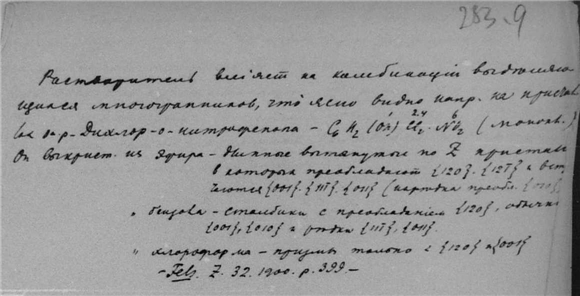 283.9
Растворитель вліяет на комбинаціи выдѣляю-
щихся многогранников, что ясно видно напр. на кристал-
ах o-p-Дихлор-o-нитрофенола - C6H2(OH)Cl2.NO2 (монокл.)
Он выкрист. из эфира - длинные вытянутые по Z кристал
в которых преобладают {120}. {12̅1} и вст
чаются {001}. {11̅1}. {011} (
" бензола - столбики с преобладаніем {120}, обычны
{001}, {010} и рѣдки {11̅1}, {011}.
" хлороформа - призмы только с {120} и {001}
- Fels. Z. 32. 1900. p. 399. -